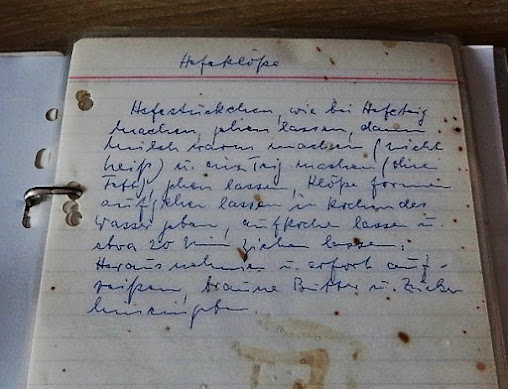 Hefeklöße
Hefestückchen, wie bei Hefeteig
machen, gehen lassen, dann
Milch warm machen (nicht
heiß) u. einen Teig machen (ohne
Fett), gehen lassen, Klöße formen
aufgehen lassen in kochendes
Wasser geben, aufkochen lassen u.
etwa 20 Min ziehen lassen.
Herausnehmen u. sofort auf-
reißen, braune Butter u. Zucker
hineingeben.